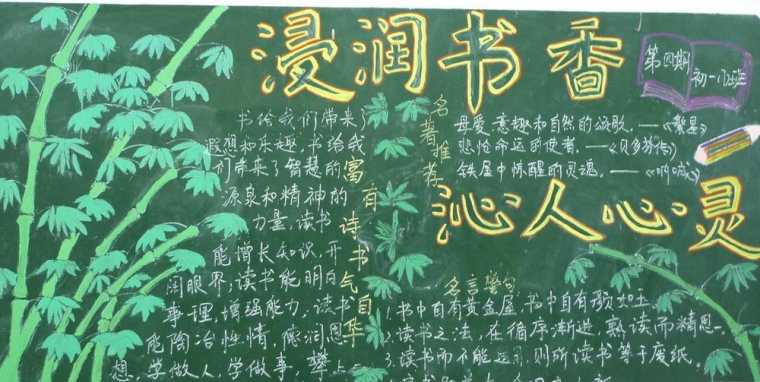 浸润书香
第四期
初一(7)班
书给我们带来了
遐想和乐趣,书给我
们带来了智慧的
源泉和精神的
力量,读书
能增长知识,开
阔眼界;读书能明白
事理,增强能力,读书
能陶冶性情,德润思
想,学做人,学做事,攀上
富有诗书气自华
名著推荐
母爱、童趣和自然的颂歌。——《繁星》
悲怆命运的使者。——《贝多芬传》
铁屋中惊醒的灵魂。——《呐喊》
沁人心灵
名言警句
1.书中自有黄金屋,书中自有颜如玉。
2.读书之法,在循序渐进,熟读而精思。
3.读书而不能运用,则所读书等于废纸。